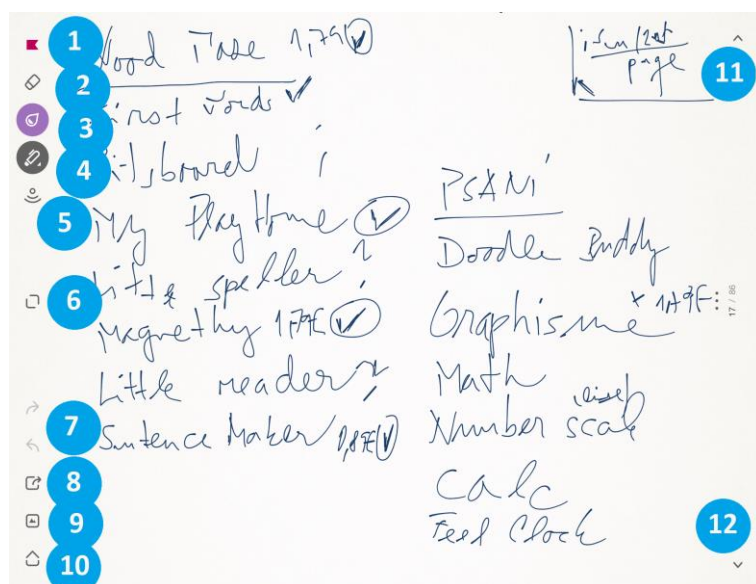 1
2
3
4
5
6
7
8
9
10
11
12
1,79
First Words
Bitsboard
My PlayHome
Little speller
Magnethy 1,79€
Little reader
Sentence Maker 0,89€
page
PSANÍ
Doodle Buddy
Graphisme * 1,79€
Math
Number scale
calc
Feel Clock
17 / 86